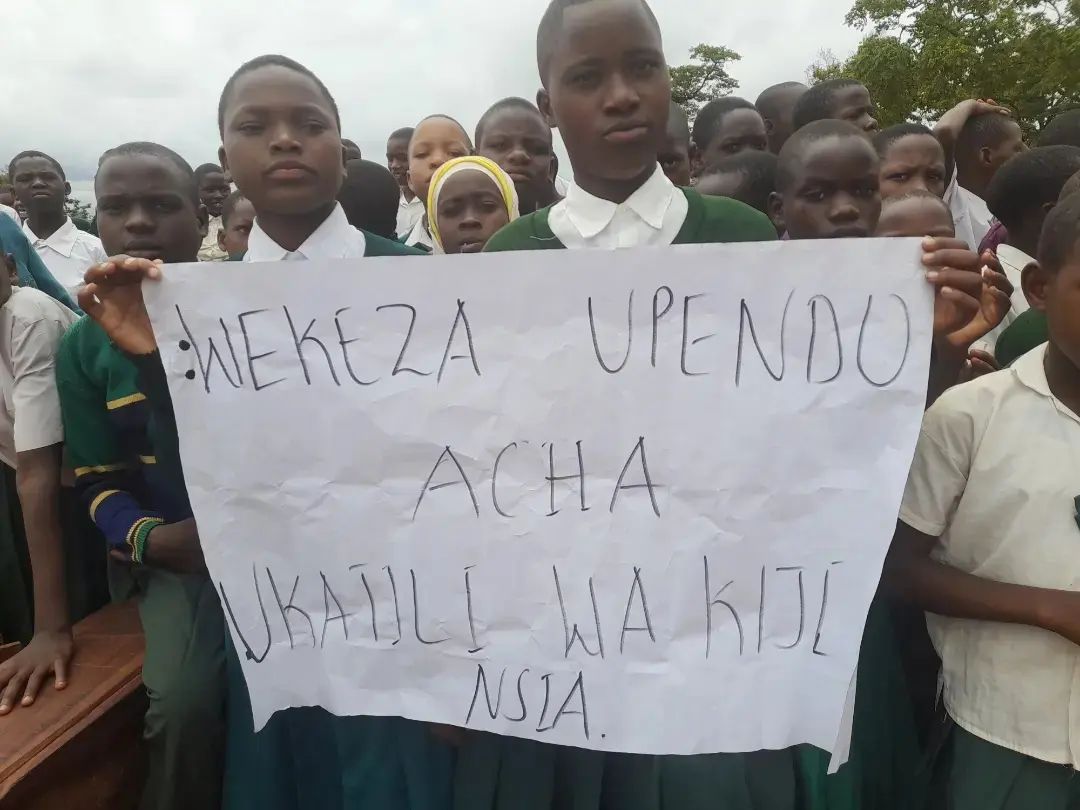 :WEKEZA UPENDO
ACHA
UKATILI WA KIJI
NSIA.